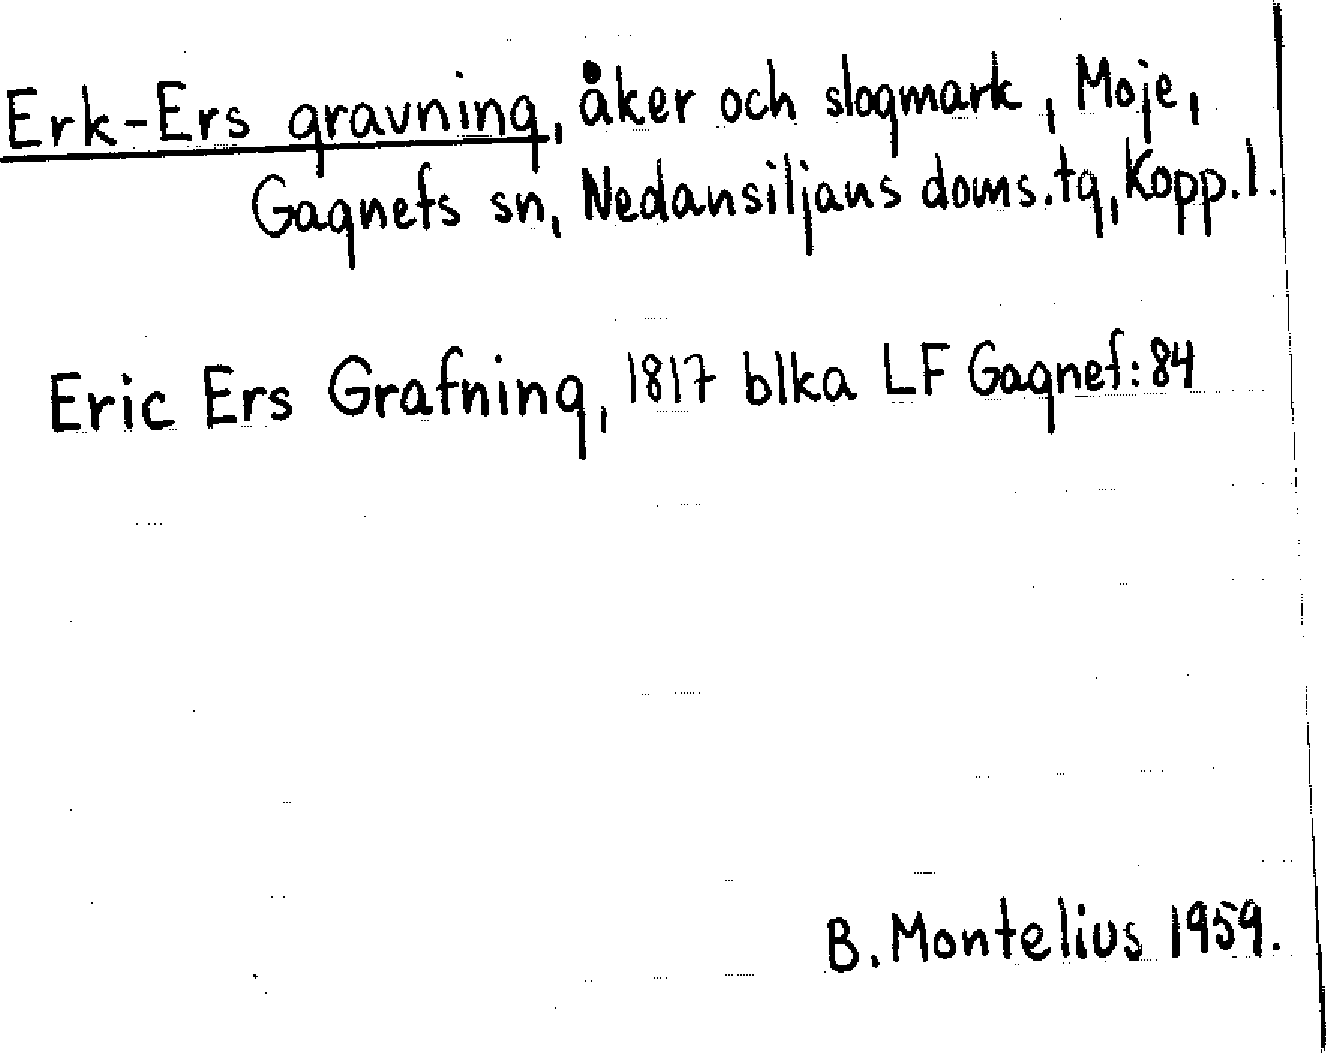 Erk-Ers gravning, åker och slogmark, Moje,
Gagnefs sn, Nedansiljans doms.tg, Kopp.l.
Eric Ers Grafning, 1817 blka LF Gagnef:84
B. Montelius 1959.